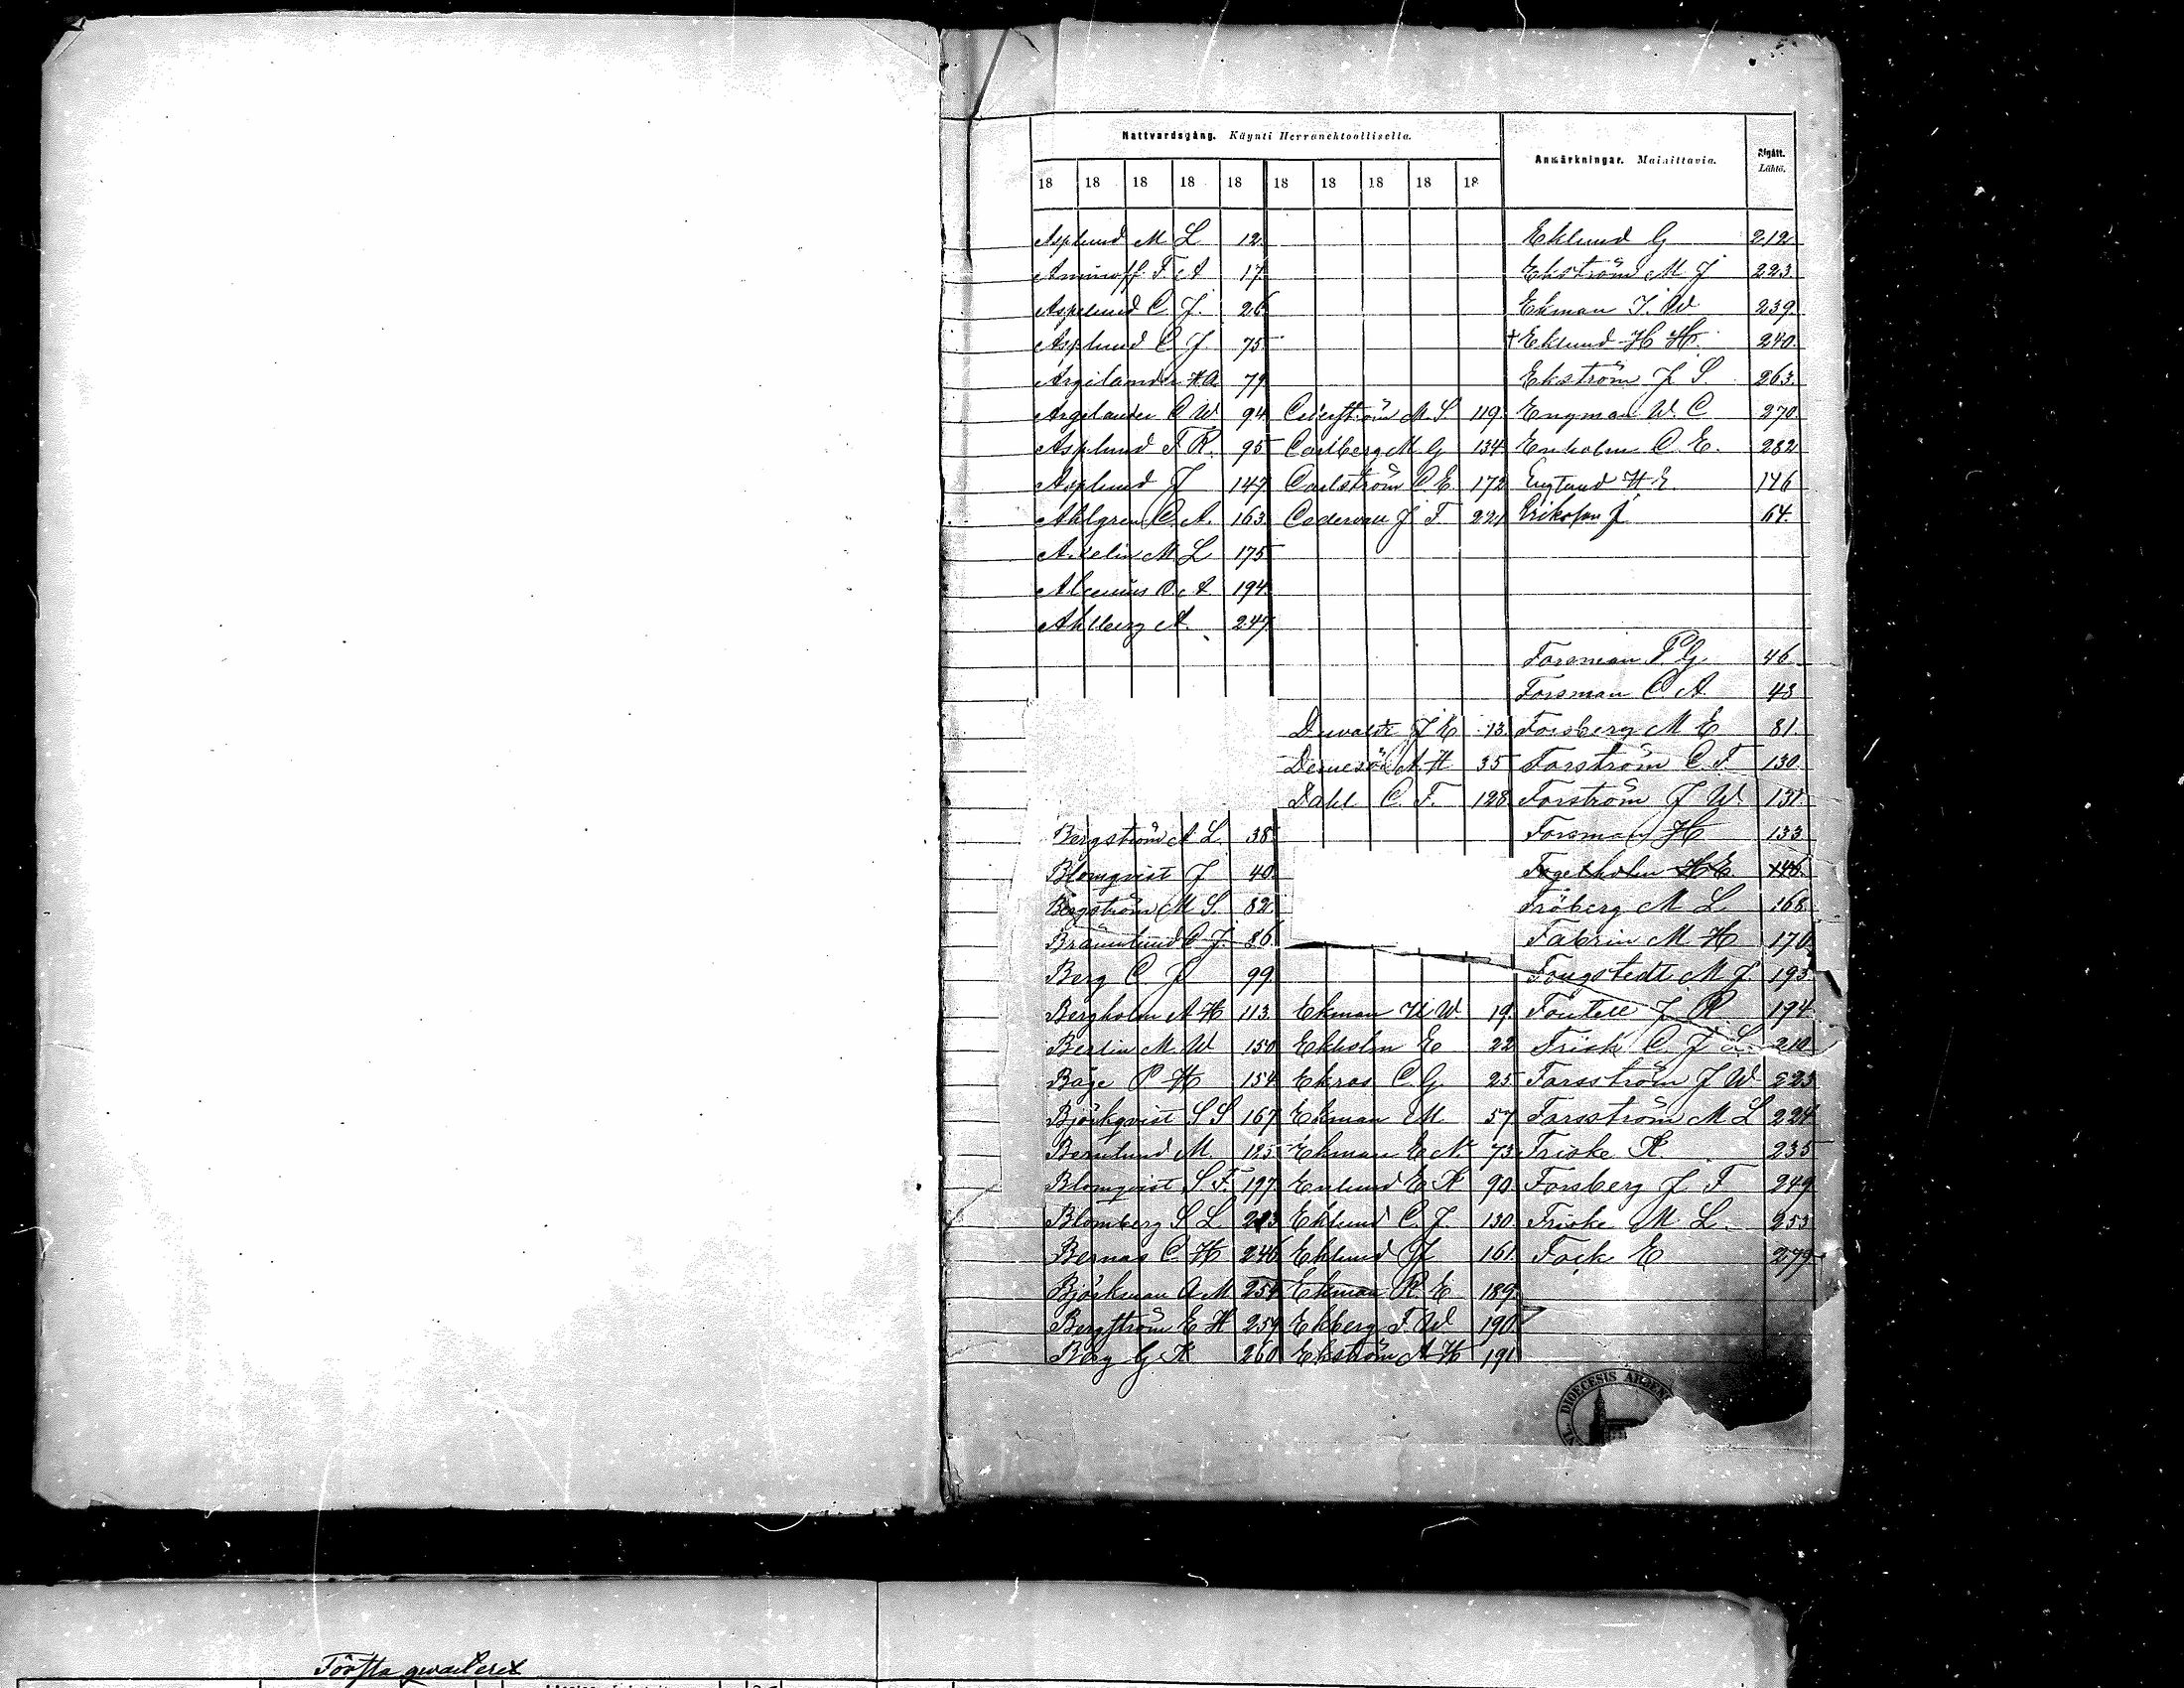 Nattvardsgång. Käynti Herranehtoollisella.
Anmärkningar. Mainittavia.
Afgått. Lähtö.
18 18 18 18 18 18 18 18 18 18
Asplund M L 12
Aminoff F. A 17
Asplund C. J. 26
Asplund C J. 75
Argilander H.A 79
Argelander C W 94
Asplund F R. 95
Asplund J 147
Ahlgren C. A. 163
M L 175
Alcenius O. A 194
Ahlberg A. 247
Bergström A L. 38
Blomqvist J 40
Bergström M S. 82
Brännlund C J. 86
Berg C J 99
Bergholm A H 113
Berlin M. W 150
Båge P H 154
Björkqvist S S 167
Bernlund M. 125
Blomqvist S F. 197
Blomberg S L 213
Bernas C. H 246
Björkman A M 254
Bergström E H 259
Berg G. K 260
Cederström M. S. 119
Carlberg M. G 134
Carlström C. E. 172
Cedervall J F 221
J E 13
A. H 35
Dahl C. F. 128
Ekman W. 19
Ekholm E 22
Ekros C. G. 25
Ekman M 57
Ekman E A. 73
Enlund E K 90
Eklund C. J. 130
Eklund J 161
Ekman R. E 189
Ekberg F. W 190
Ekström A H 191
Eklund G 212
Ekström M J 223
Ekman J. W 239
+ Eklund H H. 240
Ekström J S. 263
Engman W. C 270
Enholm C. E. 282
Englund H. E. 146
Erikson J 64.
Forsman P G. 46
Forsman C. A. 43
Forsberg M E 81.
Forström C. F. 130
Forström J W 131
Forsman H 133
Fogelholm H E 146
Fröberg M L 168
Fabrin M H 170
Fougstedt M J. 193
Fontell J R. 194
Frisk C. J L. 210
Forsström J W 223
Forsström M L 224
Friske K 235
Forsberg J. F 249
Friske M L. 253
Fock E 279
DIOECESIS ABOEN
Första qvarteret